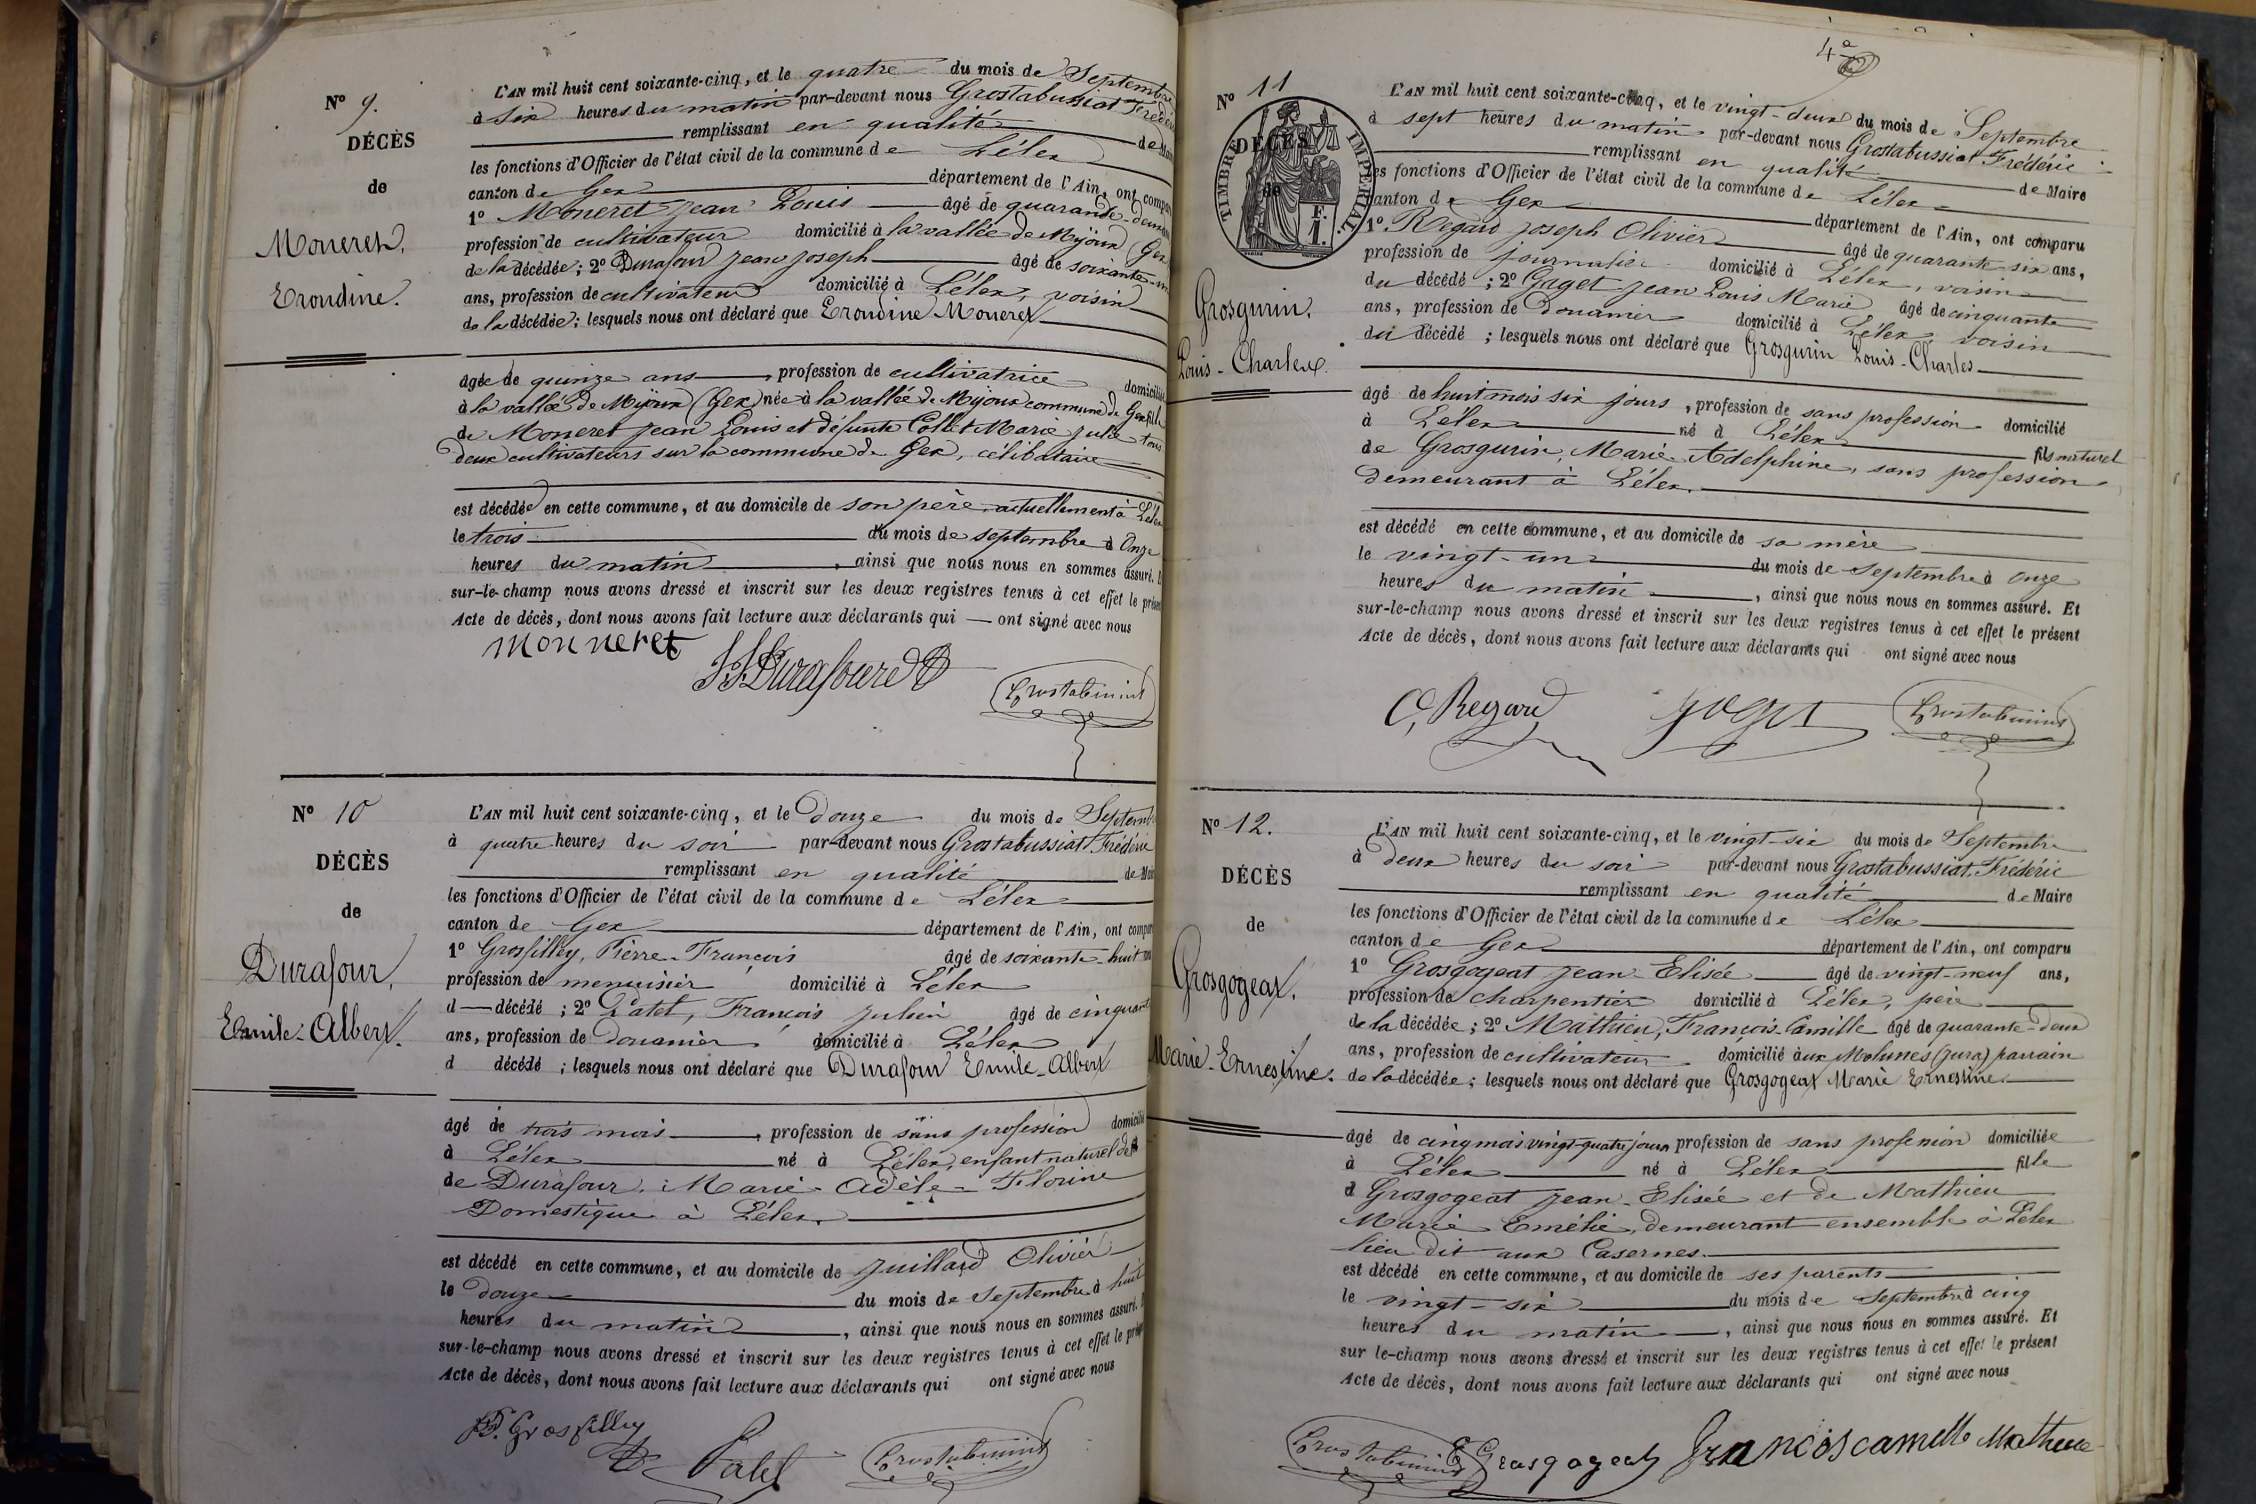 Nº 9.
DÉCÈS
de
Moneret,
Erondine.
L'AN mil huit cent soixante-cinq, et le quatre du mois de Septembre
à six heures du matin par-devant nous Grostabussiat Frédéric
remplissant en qualité de Maire
les fonctions d'Officier de l'état civil de la commune de Lélex
canton de Gex département de l'Ain, ont comparu
1º Moneret Jean Louis âgé de quarante-deux
profession de cultivateur domicilié à la vallée de Mijoux (Gex)
de la décédée; 2º Durafour Jean Joseph âgé de soixante-un
ans, profession de cultivateur domicilié à Lélex, voisin
de la décédée; lesquels nous ont déclaré que Erondine Moneret
âgée de quinze ans, profession de cultivatrice domiciliée
à la vallée de Mijoux (Gex) née à la vallée de Mijoux commune de Gex fille
de Moneret Jean Louis et défunte Collet Marie Julie tous
deux cultivateurs sur la commune de Gex, célibataire
est décédée en cette commune, et au domicile de son père, actuellement à Lélex
le trois du mois de septembre à Onze
heures du matin, ainsi que nous nous en sommes assuré. Et
sur-le-champ nous avons dressé et inscrit sur les deux registres tenus à cet effet le présent
Acte de décès, dont nous avons fait lecture aux déclarants qui ont signé avec nous
Monneret
J J Durafourd
Grostabussiat
Nº 10
DÉCÈS
de
Durafour,
Emile-Albert.
L'AN mil huit cent soixante-cinq, et le douze du mois de Septembre
à quatre heures du soir par-devant nous Grostabussiat Frédéric
remplissant en qualité de Maire
les fonctions d'Officier de l'état civil de la commune de Lélex
canton de Gex département de l'Ain, ont comparu
1º Grosfilley, Pierre-François âgé de soixante-huit ans
profession de menuisier domicilié à Lélex
d décédé; 2º Patet, François Julien âgé de cinquante
ans, profession de Douanier domicilié à Lélex
d décédé; lesquels nous ont déclaré que Durafour Emile-Albert
âgé de trois mois, profession de sans profession domicilié
à Lélex né à Lélex, enfant naturel de
de Durafour, Marie-Adèle-Florine
Domestique à Lélex.
est décédé en cette commune, et au domicile de Juillard Olivier
le douze du mois de septembre à huit
heures du matin, ainsi que nous nous en sommes assuré. Et
sur-le-champ nous avons dressé et inscrit sur les deux registres tenus à cet effet le présent
Acte de décès, dont nous avons fait lecture aux déclarants qui ont signé avec nous
P. Grosfilley
Patet
Grostabussiat
4e
Nº 11
DÉCÈS
de
TIMBRE IMPERIAL
F.
1.
Grosgurin,
Louis-Charles.
L'AN mil huit cent soixante-cinq, et le vingt-deux du mois de Septembre
à sept heures du matin par-devant nous Grostabussiat Frédéric
remplissant en qualité de Maire
les fonctions d'Officier de l'état civil de la commune de Lélex
canton de Gex département de l'Ain, ont comparu
1º Regard Joseph Olivier âgé de quarante-six ans,
profession de journalier domicilié à Lélex, voisin
du décédé; 2º Gaget Jean Louis Marie âgé de cinquante
ans, profession de Douanier domicilié à Lélex voisin
du décédé; lesquels nous ont déclaré que Grosgurin Louis-Charles
âgé de huit mois six jours, profession de sans profession domicilié
à Lélex né à Lélex fils naturel
de Grosgurin, Marie-Adelphine, sans profession
demeurant à Lélex.
est décédé en cette commune, et au domicile de sa mère
le vingt-un du mois de septembre à onze
heures du matin, ainsi que nous nous en sommes assuré. Et
sur-le-champ nous avons dressé et inscrit sur les deux registres tenus à cet effet le présent
Acte de décès, dont nous avons fait lecture aux déclarants qui ont signé avec nous
O, Regard
Gaget
Grostabussiat
Nº 12.
DÉCÈS
de
Grosgogeat,
Marie-Ernestine.
L'AN mil huit cent soixante-cinq, et le vingt-six du mois de Septembre
à deux heures du soir par-devant nous Grostabussiat, Frédéric
remplissant en qualité de Maire
les fonctions d'Officier de l'état civil de la commune de Lélex
canton de Gex département de l'Ain, ont comparu
1º Grosgogeat Jean-Elisée âgé de vingt-neuf ans,
profession de charpentier domicilié à Lélex, père
de la décédée; 2º Mathieu, François-Camille âgé de quarante-deux
ans, profession de cultivateur domicilié aux Molunes (Jura) parrain
de la décédée; lesquels nous ont déclaré que Grosgogeat Marie Ernestine
âgé de cinq mois vingt-quatre jours profession de sans profession domiciliée
à Lélex né à Lélex fille
d Grosgogeat Jean-Elisée et de Mathieu
Marie Emélie, demeurant ensemble à Lélex
lieu dit aux Casernes.
est décédé en cette commune, et au domicile de ses parents
le vingt-six du mois de septembre à cinq
heures du matin, ainsi que nous nous en sommes assuré. Et
sur le-champ nous avons dressé et inscrit sur les deux registres tenus à cet effet le présent
Acte de décès, dont nous avons fait lecture aux déclarants qui ont signé avec nous
Grostabussiat
E Grosgogeat
François camille Mathieu